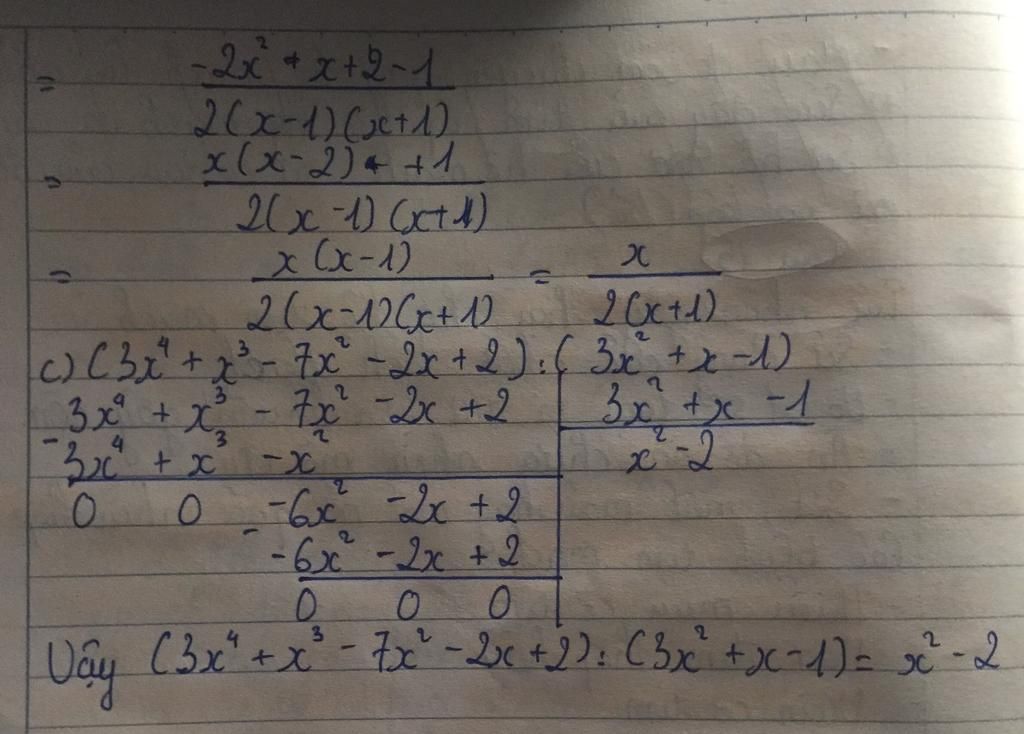 = (-2x² + x + 2 - 1) / (2(x-1)(x+1))
= (x(x-2) + +1) / (2(x-1)(x+1))
= (x(x-1)) / (2(x-1)(x+1)) = x / (2(x+1))
c) (3x⁴ + x³ - 7x² - 2x + 2) : (3x² + x - 1)
3x⁴ + x³ - 7x² - 2x + 2 | 3x² + x - 1
- 3x⁴ + x³ - x² | x² - 2
0 0 -6x² - 2x + 2
- -6x² - 2x + 2
0 0 0
Vậy (3x⁴ + x³ - 7x² - 2x + 2) : (3x² + x - 1) = x² - 2